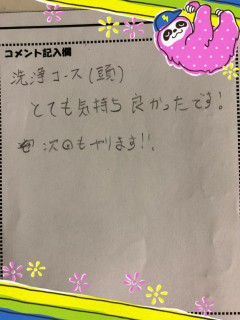 コメント記入欄
洗浄コース(頭)
とても気持ち良かったです!
次回もやります!!